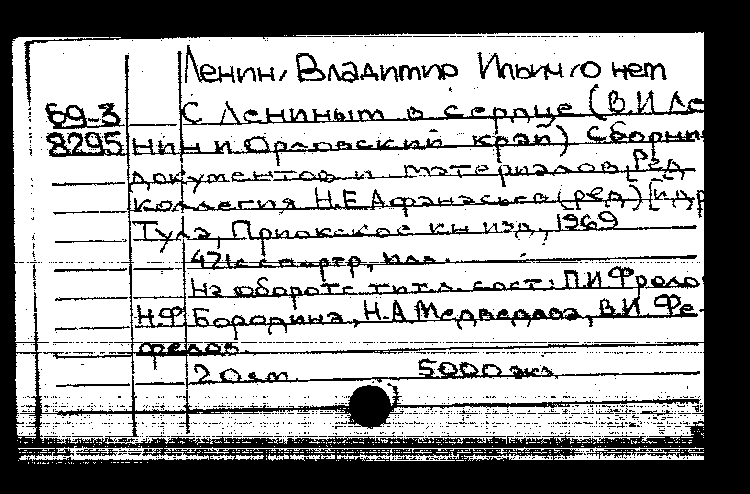 Ленин, Владимир Ильич, о нем
69-3 С Лениным в сердце (В.И Ле
8295 нин и Орловский край) Сборни
документов и материалов, Ред
коллегия Н.Е Афанасьев (ред) [и др
Тула, Приокское кн изд, 1969
471с с портр, илл.
На обороте тит.л. сост: П.И Фроло
Н.Ф Бородина, Н.А Медведева, В.И Фе-
федов.
20см. 5000 экз